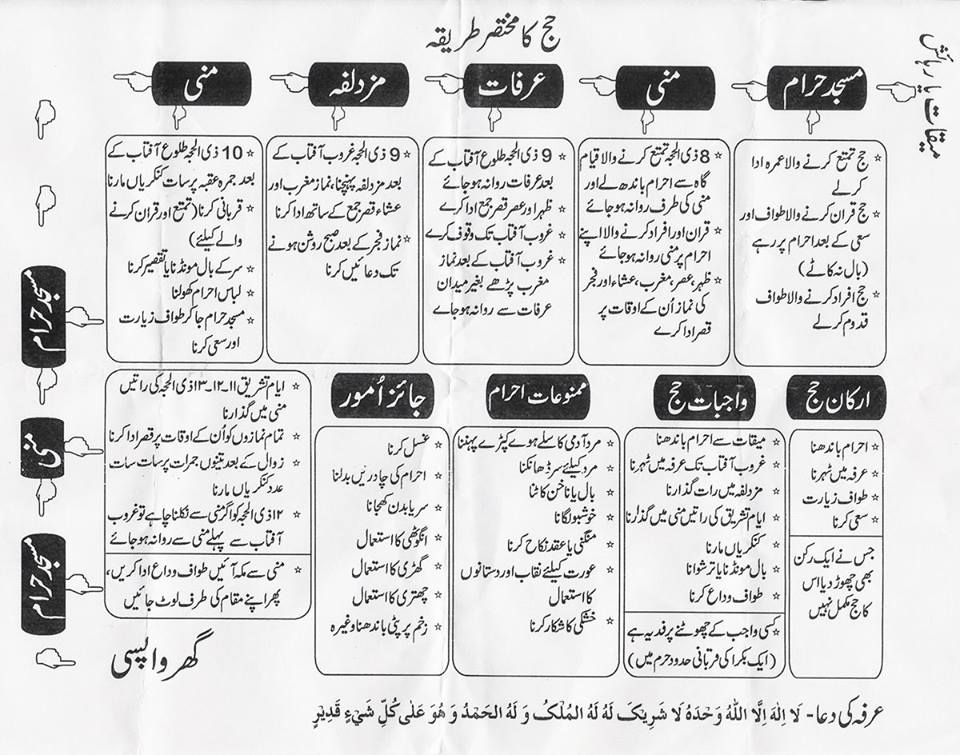 حج کا مختصر طریقہ
میقات یا رہائش
مسجد حرام
* حج تمتع کرنے والا عمرہ ادا
کرلے
* حج قران کرنے والا طواف اور
سعی کے بعد احرام پر رہے
(بال نہ کاٹے)
* حج افراد کرنے والا طواف
قدوم کرلے
منی
* 8 ذی الحجہ تمتع کرنے والا قیام
گاہ سے احرام باندھ لے اور
منی کی طرف روانہ ہوجائے
* قران اور افراد کرنے والا اپنے
احرام پر منی روانہ ہوجائے
* ظہر، عصر، مغرب، عشاء اور فجر
کی نماز اُن کے اوقات پر
قصر ادا کرے
عرفات
* 9 ذی الحجہ طلوع آفتاب کے
بعد عرفات روانہ ہوجائے
* ظہر اور عصر قصر جمع ادا کرے
* غروب آفتاب تک وقوف کرے
* غروب آفتاب کے بعد نماز
مغرب پڑھے بغیر میدان
عرفات سے روانہ ہوجاے
مزدلفہ
* 9 ذی الحجہ غروب آفتاب کے
بعد مزدلفہ پہنچنا، نماز مغرب اور
عشاء قصر جمع کے ساتھ ادا کرنا
* نماز فجر کے بعد صبح روشن ہونے
تک دعائیں کرنا
منی
* 10 ذی الحجہ طلوع آفتاب کے
بعد جمرہ عقبہ پر سات کنکریاں مارنا
* قربانی کرنا (تمتع اور قران کرنے
والے کیلئے)
* سر کے بال مونڈنا یا تقصیر کرنا
* لباس احرام کھولنا
* مسجد حرام جا کر طواف زیارت
اور سعی کرنا
مسجد حرام
منی
* ایام تشریق ۱۱-۱۲-۱۳ ذی الحجہ کی راتیں
منی میں گذارنا
* تمام نمازوں کو اُن کے اوقات پر قصر ادا کرنا
* زوال کے بعد تینوں جمرات پر سات سات
عدد کنکریاں مارنا
* ۱۲ ذی الحجہ کو اگر منی سے نکلنا چاہے تو غروب
آفتاب سے پہلے منی سے روانہ ہوجائے
مسجد حرام
* منی سے مکہ آئیں طواف وداع ادا کریں،
پھر اپنے مقام کی طرف لوٹ جائیں
گھر واپسی
ارکان حج
* احرام باندھنا
* عرفہ میں ٹہرنا
* طواف زیارت
* سعی کرنا
جس نے ایک رکن
بھی چھوڑ دیا اس
کا حج مکمل نہیں
واجبات حج
* میقات سے احرام باندھنا
* غروب آفتاب تک عرفہ میں ٹہرنا
* مزدلفہ میں رات گذارنا
* ایام تشریق کی راتیں منی میں گذارنا
* کنکریاں مارنا
* بال مونڈنا یا ترشوانا
* طواف وداع کرنا
* کسی واجب کے چھوٹنے پر فدیہ ہے
(ایک بکرا کی قربانی حدود حرم میں)
ممنوعات احرام
* مرد آدمی کا سلے ہوے کپڑے پہننا
* مرد کیلئے سر ڈھانکنا
* بال یا ناخن کاٹنا
* خوشبو لگانا
* منگنی یا عقد نکاح کرنا
* عورت کیلئے نقاب اور دستانوں
کا استعمال
* خشکی کا شکار کرنا
جائز اُمور
* غسل کرنا
* احرام کی چادریں بدلنا
* سر یا بدن کھجانا
* انگوٹھی کا استعمال
* گھڑی کا استعمال
* چھتری کا استعمال
* زخم پر پٹی باندھنا وغیرہ
عرفہ کی دعا - لَا اِلٰهَ اِلَّا اللّٰهُ وَحْدَهُ لَا شَرِيْكَ لَهُ لَهُ الْمُلْكُ وَ لَهُ الْحَمْدُ وَ هُوَ عَلٰى كُلِّ شَيْءٍ قَدِيْرٍ